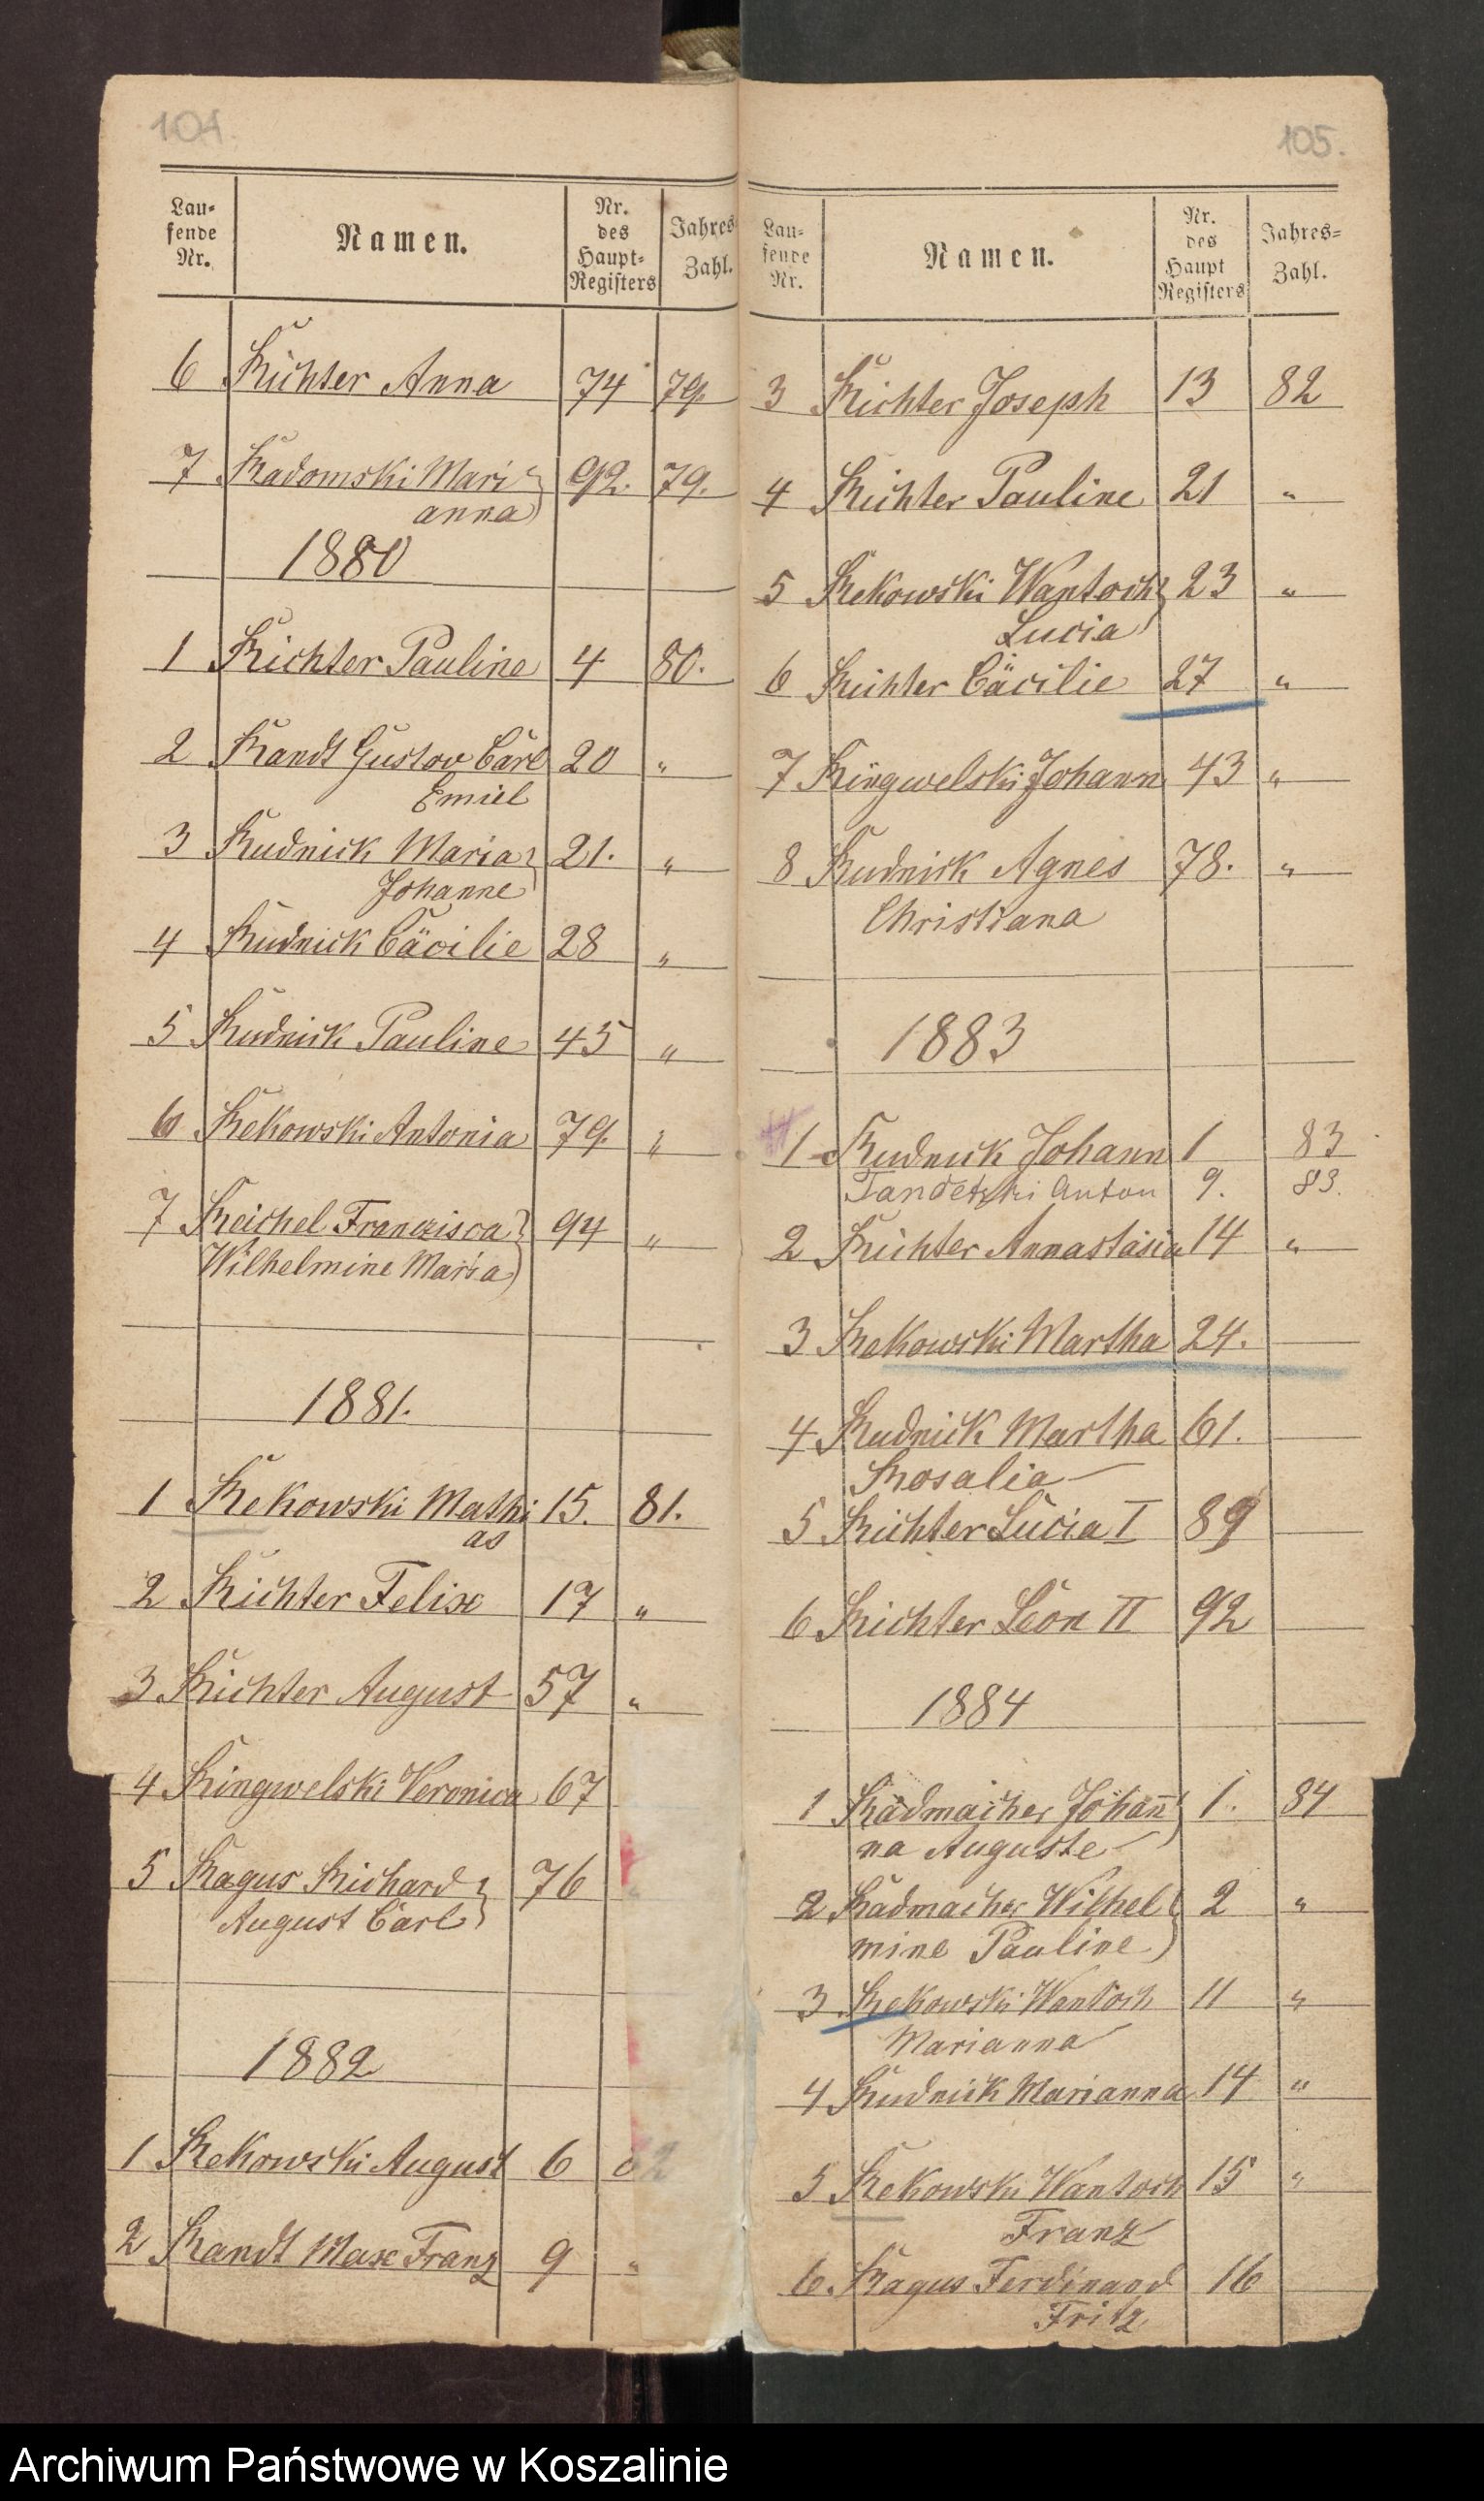 104.
Lau=
fende
Nr.
Namen.
Nr.
des
Haupt=
Registers
Jahres
Zahl.
6 Richter Anna 74 79.
7 Radomski Mari 92. 79.
anna
1880
1 Richter Pauline 4 80.
2 Randt Gustav Carl 20 "
Emiel
3 Rudnick Maria 21. "
Johanne
4 Rudnick Cäcilie 28 "
5 Rudnick Pauline 45 "
6 Rekowski Antonia 79. "
7 Reichel Franzisca 94 "
Wilhelmine Maria
1881.
1 Rekowski Mathi 15. 81.
as
2 Richter Felix 17 "
3 Richter August 57 "
4 Ringwelski Veronica 67
5 Ragus Richard 76
August Carl
1882
1 Rekowski August 6 82
2 Randt Max Franz 9 "
105.
Lau=
fende
Nr.
Namen.
Nr.
des
Haupt
Registers
Jahres=
Zahl.
3 Richter Joseph 13 82
4 Richter Pauline 21 "
5 Rekowski Wantoch 23 "
Lucia
6 Richter Cäcilie 27 "
7 Ringwelski Johann 43 "
8 Rudnick Agnes 78. "
Christiana
1883
1 Rudnick Johann 1 83
Tandetzki Anton 9. 83.
2 Richter Annastasia 14 "
3 Rekowski Martha 24.
4 Rudnick Martha 61.
Rosalia
5 Richter Lucia I 89
6 Richter Leon II 92
1884
1 Radmacher Johan̄ 1. 84
na Auguste
2 Radmacher Wilhel 2 "
mine Pauline
3 Rekowski Wantoch 11 "
Marianna
4 Rudnick Marianna 14 "
5 Rekowski Wantoch 15 "
Franz
6. Ragus Ferdinand 16
Fritz
Archiwum Państwowe w Koszalinie